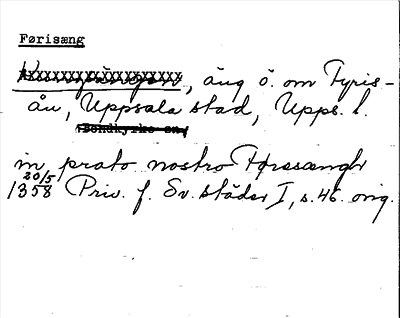 Førisæng
Kungsängen, äng ö. om Fyris-
ån, Uppsala stad, Upps. l.
Bondkyrko sn
in prato nostro Føresængh
20/5 1358 Priv. f. Sv. städer I, s. 46. orig.